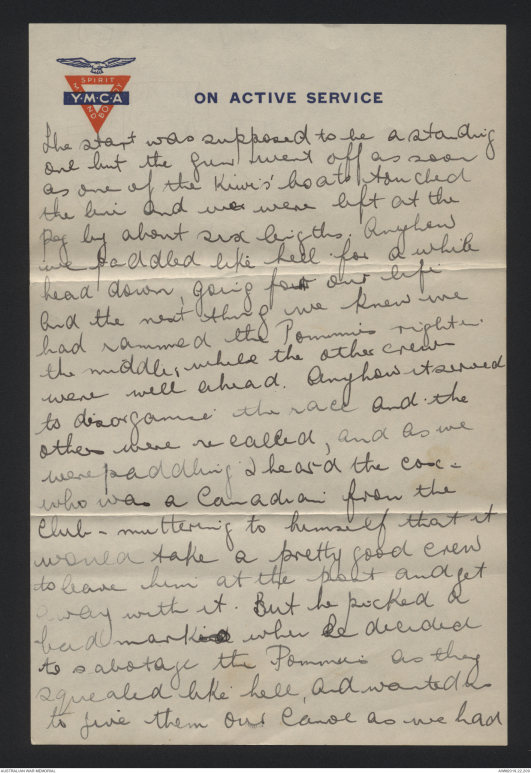 SPIRIT
MIND
BODY
Y·M·C·A
ON ACTIVE SERVICE
The start was supposed to be a standing
one but the gun went off as soon
as one of the Kiwis' boats touched
the line and we were left at the
peg by about six lengths. Anyhow
we paddled like hell for a while
head down, going for our life
and the next thing we knew we
had rammed the Pommies right in
the middle, while the other crews
were well ahead. Anyhow it served
to disorganise the race and the
others were recalled, and as we
were paddling I heard the cox -
who was a Canadian from the
Club - muttering to himself that it
would take a pretty good crew
to leave him at the post and get
away with it. But he picked a
bad mark when he decided
to sabotage the Pommies as they
squealed like hell, and wanted us
to give them our canoe as we had
AUSTRALIAN WAR MEMORIAL